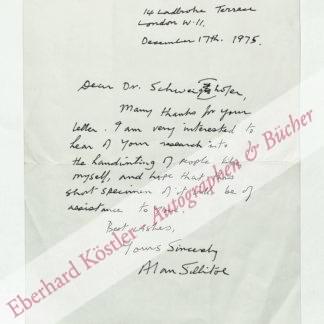 14 Ladbroke Terrace
London W.11.
December 17th. 1975.
Dear Dr. Schweighofer,
Many thanks for your
letter. I am very interested to
hear of your research into
the handwriting of people like
myself, and hope that this
short specimen of it will be of
assistance to you.
Best wishes,
Yours Sincerely
Alan Sillitoe
Eberhard Köstler - Autographen & Bücher